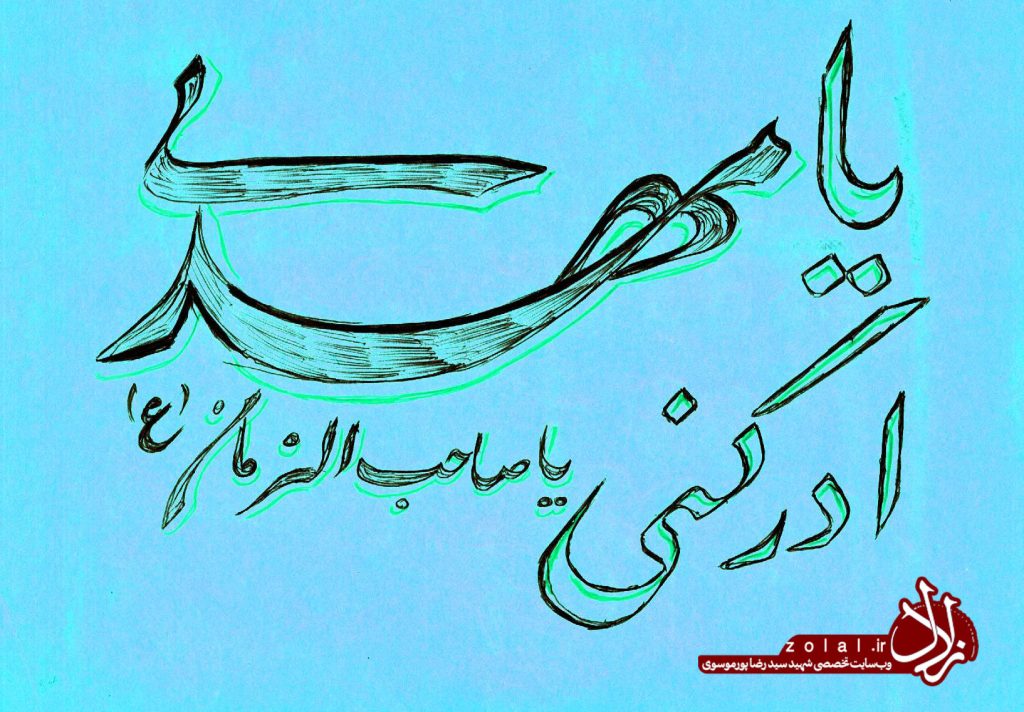 یا مهدی
ادرکنی
یا صاحب الزمان (ع)
zolal.ir
زلال
وب‌سایت تخصصی شهید سید رضا پورموسوی